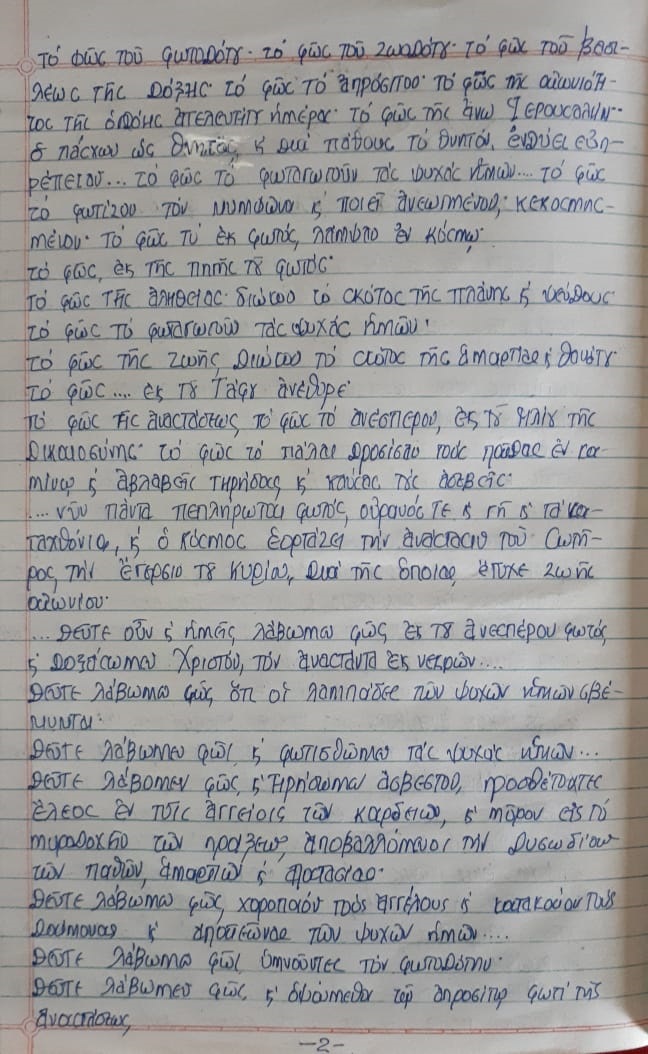 Τό φῶς τοῦ φωτοδότου· τό φῶς τοῦ ζωοδότου· τό φῶς τοῦ βασι-
λέως τῆς δόξης· τό φῶς τό ἀπρόσιτο· τό φῶς τῆς αἰωνιότη-
τος τῆς ὀγδόης ἀτελευτήτου ἡμέρας· τό φῶς τῆς ἄνω Ἱερουσαλήμ·
ὁ πάσχων ὡς θνητός, κ διά πάθους τό θνητόν, ἐνδύει εὐπ-
ρέπειαν... τό φῶς τό φωταγωγοῦν τάς ψυχάς ἡμῶν.... τό φῶς
τό φωτίζον τόν νυμφῶνα κ ποιεῖ ἀνεωγμένον, κεκοσμησ-
μένον· τό φῶς τό ἐκ φωτός, λάμψαν ἐν κόσμῳ·
τό φῶς, ἐκ τῆς πηγῆς τοῦ φωτός·
τό φῶς τῆς ἀληθείας· διώκον τό σκότος τῆς πλάνης κ ψεύδους
τό φῶς τό φωταγωγοῦν τάς ψυχάς ἡμῶν·
τό φῶς τῆς ζωῆς, διώκον τό σκότος τῆς ἁμαρτίας κ θανάτου
τό φῶς.... ἐκ τοῦ Τάφου ἀνέθορε
τό φῶς τῆς ἀναστάσεως, τό φῶς τό ἀνέσπερον, ἐκ τοῦ Ἡλίου τῆς
Δικαιοσύνης· τό φῶς τό πάλαι δροσίσαν τούς παῖδας ἐν κα-
μίνῳ κ ἀβλαβεῖς τηρήσας κ καύσας τούς ἀσεβεῖς·
... νῦν πάντα πεπλήρωται φωτός, οὐρανός τε κ γῆ κ τά κα-
ταχθόνια, κ ὁ κόσμος ἑορτάζει τήν ἀνάστασιν τοῦ Σωτῆ-
ρος, τήν ἔγερσιν τοῦ Κυρίου, διά τῆς ὁποίας, ἔτυχε ζωῆς
αἰωνίου·
... Δεῦτε οὖν κ ἡμεῖς λάβωμεν φῶς ἐκ τοῦ ἀνεσπέρου φωτός
κ δοξάσωμεν Χριστόν, τόν ἀναστάντα ἐκ νεκρῶν....
Δεῦτε λάβωμεν φῶς, ὅτι οἱ λαμπάδες τῶν ψυχῶν ἡμῶν σβέ-
νυνται·
Δεῦτε λάβωμεν φῶς κ φωτισθῶμεν τάς ψυχάς ἡμῶν...
Δεῦτε λάβομεν φῶς, κ τηρήσωμεν ἄσβεστον, προσθέτοντες
ἔλεος ἐν τοῖς ἀγγείοις τῶν καρδειῶν, κ μῦρον εἰς τό
μυροδοχεῖο τῶν πράξεων, ἀποβαλλόμενοι τήν δυσωδίαν
τῶν παθῶν, ἁμαρτιῶν κ
Δεῦτε λάβωμεν φῶς, χαροποιόν τούς ἀγγέλους κ κατακαῖον τούς
δαίμονας κ τῶν ψυχῶν ἡμῶν....
Δεῦτε λάβωμεν φῶς ὑμνοῦντες τόν φωτοδότην·
Δεῦτε λάβωμεν φῶς, κ τῷ ἀπροσίτῳ φωτί τῆς
ἀναστάσεως,
-2-